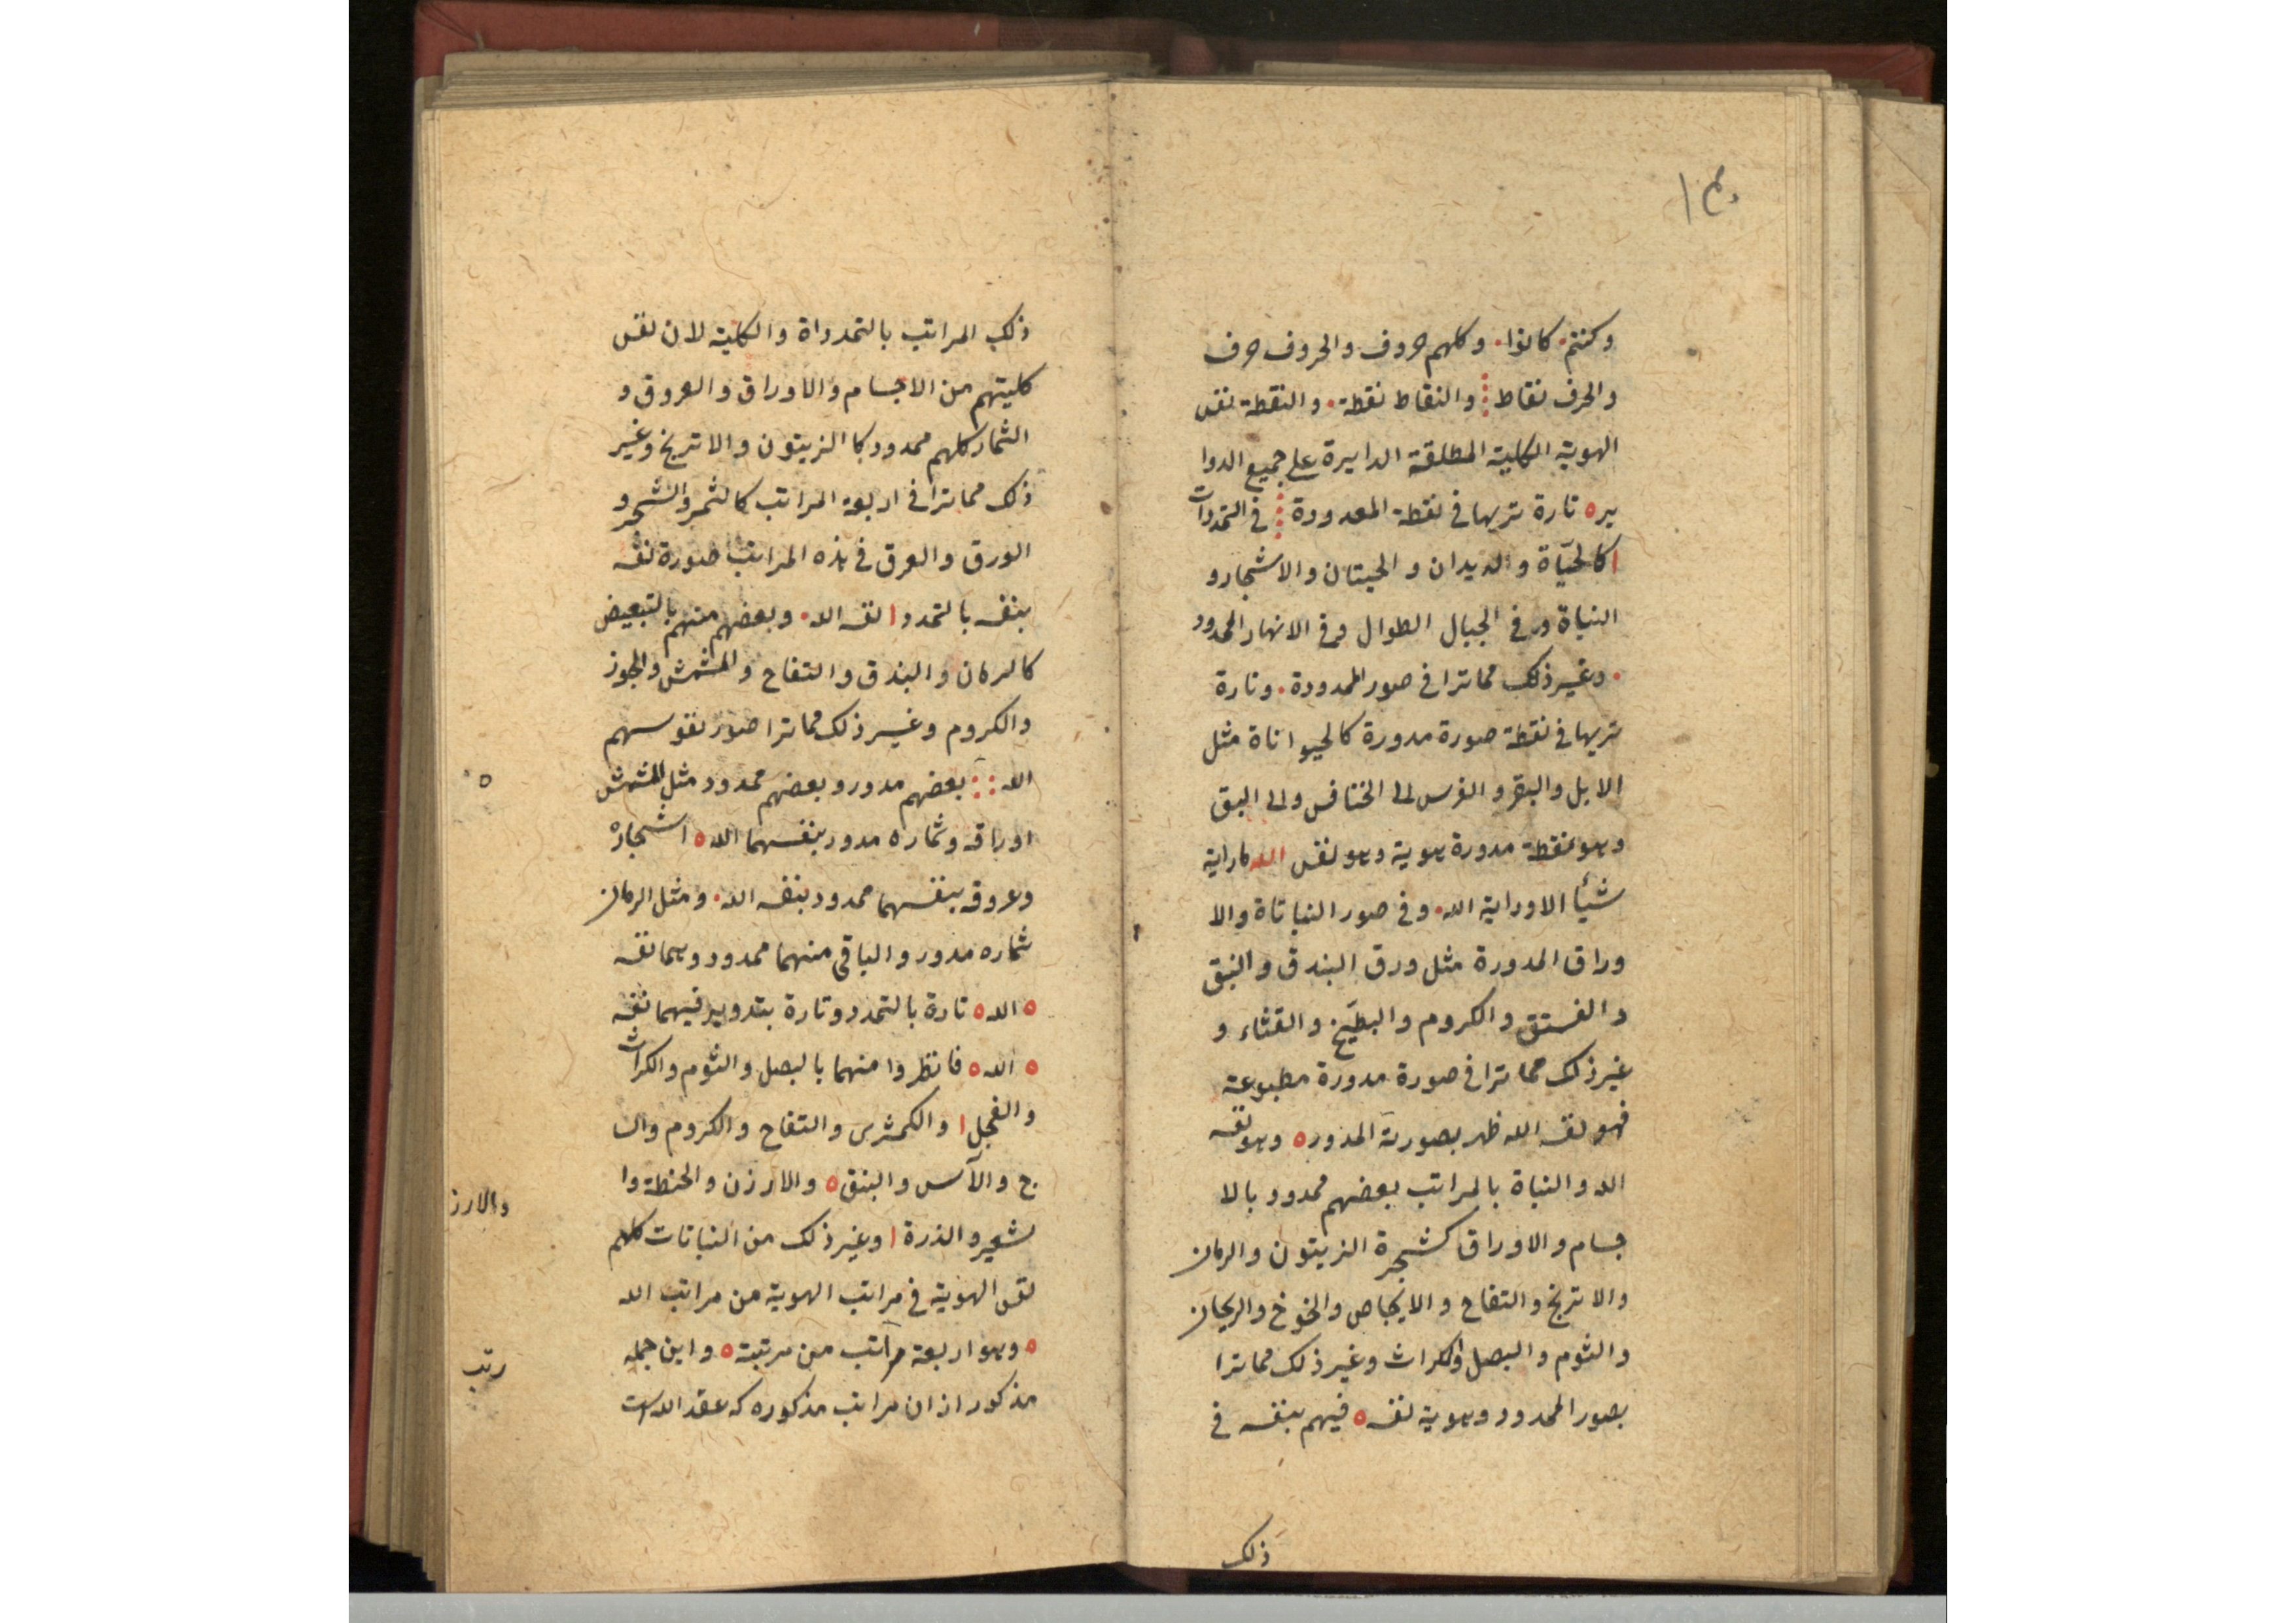 وكنتم كانوا وكلهم حروف والحروف حرف
والحرف نقاط والنقاط نقطة والنقطة نفس
الهوية الكلية المطلقة الدايرة على جميع الدوا
ير تارة تريها في نقطة المعدودة في التمددات
كالحياة والديدان والحيتان والاشجار و
النباة وفي الجبال الطوال وفي الانهار الممدود
وغير ذلك مما ترا في صور الممدودة وتارة
تريها في نقطة صورة مدورة كالحيواناة مثل
الابل والبقر والفرس الى الخنافس والى البق
وهو نقطة مدورة هوية وهو نفس الله ماراية
شيأ الا وراية الله وفي صور النباتاة والا
وراق المدورة مثل ورق البندق والنبق
والفستق والكروم والبطيخ والقثاء و
غير ذلك مما ترا في صورة مدورة مطبوعة
فهو نفسه الله ظهر بصورته المدور وهو نفسه
الله والنباة بالمراتب بعضهم ممدود بالا
جسام والاوراق كشجرة الزيتون والرمان
والاترنج والتفاح والانجاص والخوخ والريحان
والثوم والبصل والكراث وغير ذلك مما ترا
بصور الممدود وهوية نفسه فيهم بنفسه في
ذلك
ذلك المراتب بالتمدداة والكلية لان نفس
كليتهم من الاجسام والاوراق والعروق و
الثمار كلهم ممدود كا الزيتون والاترنج وغير
ذلك مما ترا في اربعة المراتب كالثمر والشجر و
الورق والعرق في هذه المراتب صورة نفسه
بنفسه بالتمدد نفسه الله وبعضهم منهم بالتبعيض
كالرمان والبندق والتفاح والمشمش والجوز
والكروم وغير ذلك مما ترا صور نفوسهم
الله بعضهم مدور وبعضهم ممدود مثل المشمش
اوراقه وثماره مدور بنفسهما الله اشجاره
وعروقه بنفسهما ممدود بنفسه الله ومثل الرمان
ثماره مدور والباقي منهما ممدود وهما نفسه
الله تارة بالتمدد وتارة بتدوير فيهما نفسه
الله فانظروا منهما بالبصل والثوم والكراث
والفجل والكمثرى والتفاح والكروم وال
ج والآس والبنق والارزن والحنطة وا
لشعير والذرة وغير ذلك من النباتات كلهم
والارز
نفس الهوية في مراتب الهوية من مراتب الله
وهو اربعة مراتب من مرتبة واين جمله
رتب
مذكور ازان مراتب مذكوره كه عقد الله است